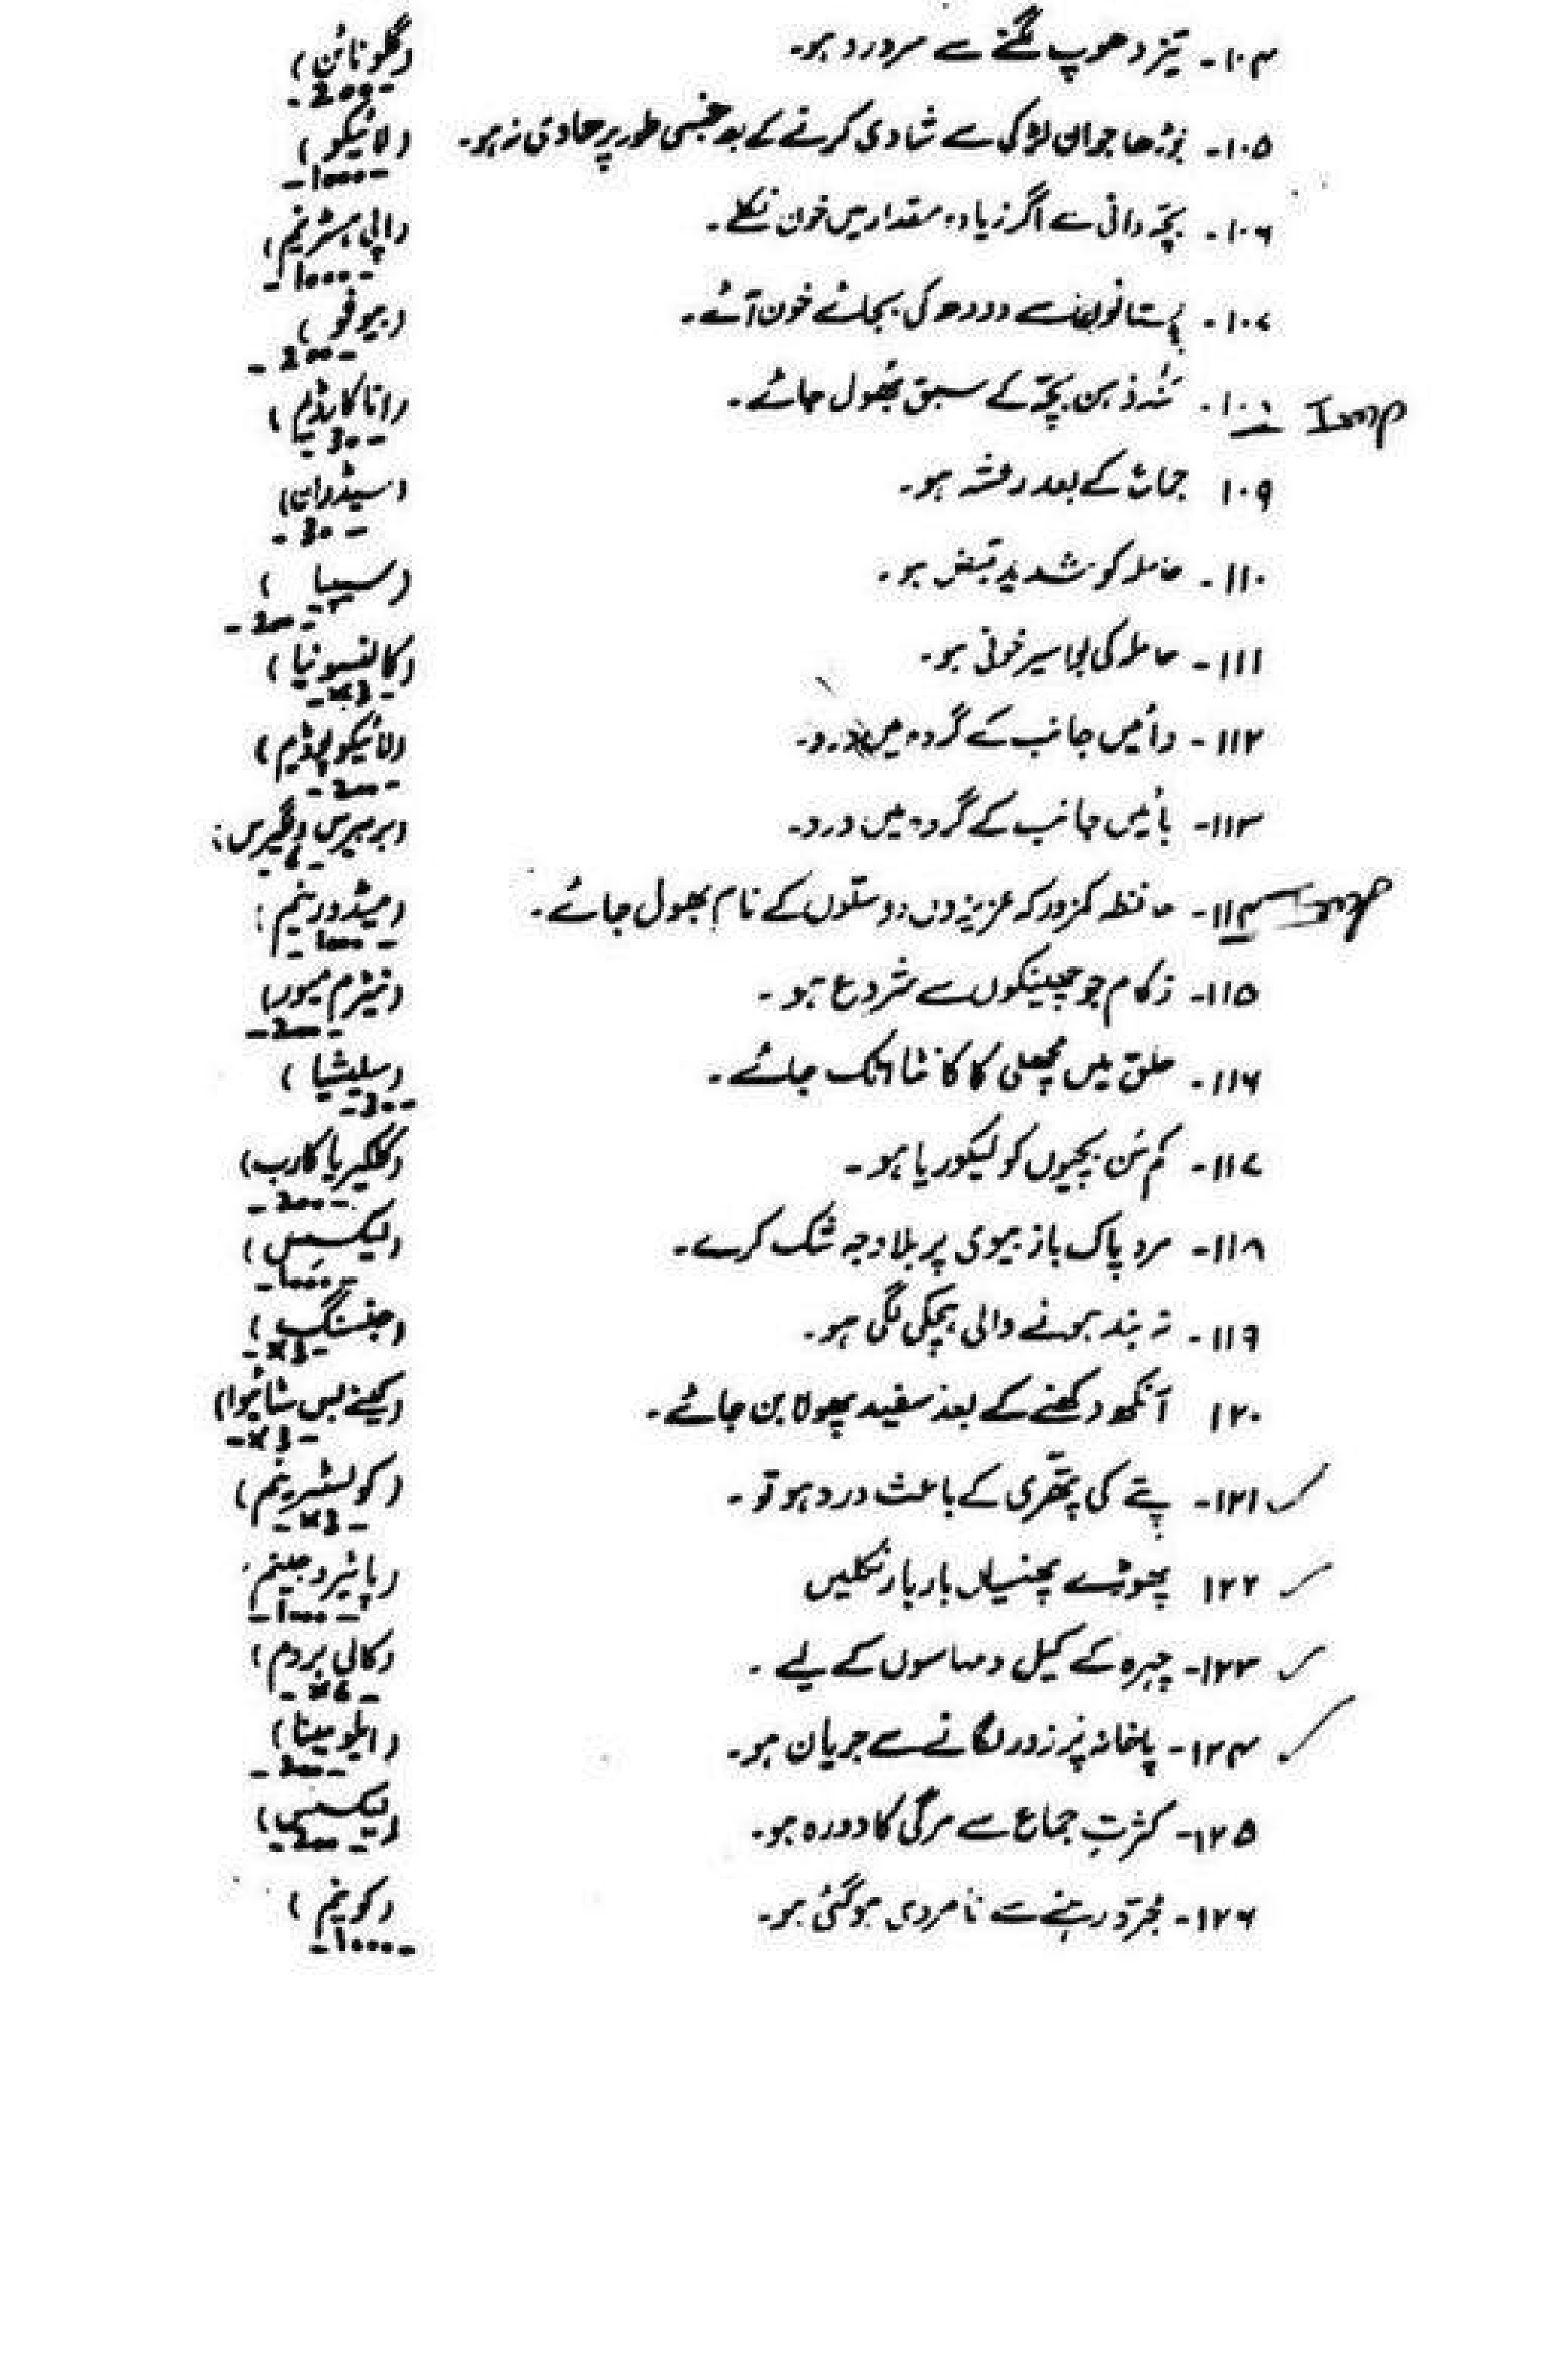 ۱۰۴- تیز دھوپ لگنے سے سردرد ہو۔ (گلونائن)
-200-
۱۰۵- بڑھا جوان لڑکی سے شادی کرنے کے بعد جنسی طور پر حاوی نہ ہو۔ (لائیکو)
-1000-
۱۰۶- بچہ دانی سے اگر زیادہ مقدار میں خون نکلے۔
-1000-
۱۰۷- پستانوں سے دودھ کی بجائے خون آئے۔ (بیوفو)
-200-
۱۰۸- کُند ذہن بچّے کے سبق بھُول جائے۔ (اناکارڈیم) Imp
-30-
۱۰۹ جماع کے بعد رعشہ ہو۔ (سیڈران)
-30-
۱۱۰- حاملہ کو شدید قبض ہو۔ (سیپیا)
-200-
۱۱۱- حاملہ کی بواسیر خونی ہو۔ (کالنسونیا)
-3x-
۱۱۲- دائیں جانب کے گردہ میں درد۔ (لائیکوپوڈیم)
-200-
۱۱۳- بائیں جانب کے گردہ میں درد۔ (بربیرس ولگیرس)
۱۱۴- حافظہ کمزور کہ عزیزوں دوستوں کے نام بھول جائے۔ (میڈورینم) Imp
-1000-
۱۱۵- زکام جو چھینکوں سے شروع ہو۔ (نیٹرم میور)
-200-
۱۱۶- حلق میں مچھلی کا کانٹا اٹک جائے۔ (سلیشیا)
-200-
۱۱۷- کم سن بچیوں کو لیکوریا ہو۔ (کلکیریا کارب)
-200-
۱۱۸- مرد پاک باز بیوی پر بلاوجہ شک کرے۔ (لیکسس)
-1000-
۱۱۹- نہ بند ہونے والی ہچکی لگی ہو۔ (جنسنگ)
-3x-
۱۲۰ آنکھ دکھنے کے بعد سفید پھولا بن جائے۔ (کینے بس سٹائیوا)
-3x-
۱۲۱- پتے کی پتھّری کے باعث درد ہو تو۔ (کولسٹرینم)
-3x-
۱۲۲ پھوڑے پھنسیاں بار بار نکلیں (پائیروجینم)
-1000-
۱۲۳- چہرہ کے کیل و مہاسوں کے لیے۔ (کالی بروم)
-6x-
۱۲۴- پاخانہ پر زور لگانے سے جریان ہو۔ (ایلومینا)
-200-
۱۲۵- کثرتِ جماع سے مرگی کا دورہ ہو۔ (لیکسس)
-200-
۱۲۶- مجرّد رہنے سے نامردی ہو گئی ہو۔ (کونیم)
-1000-